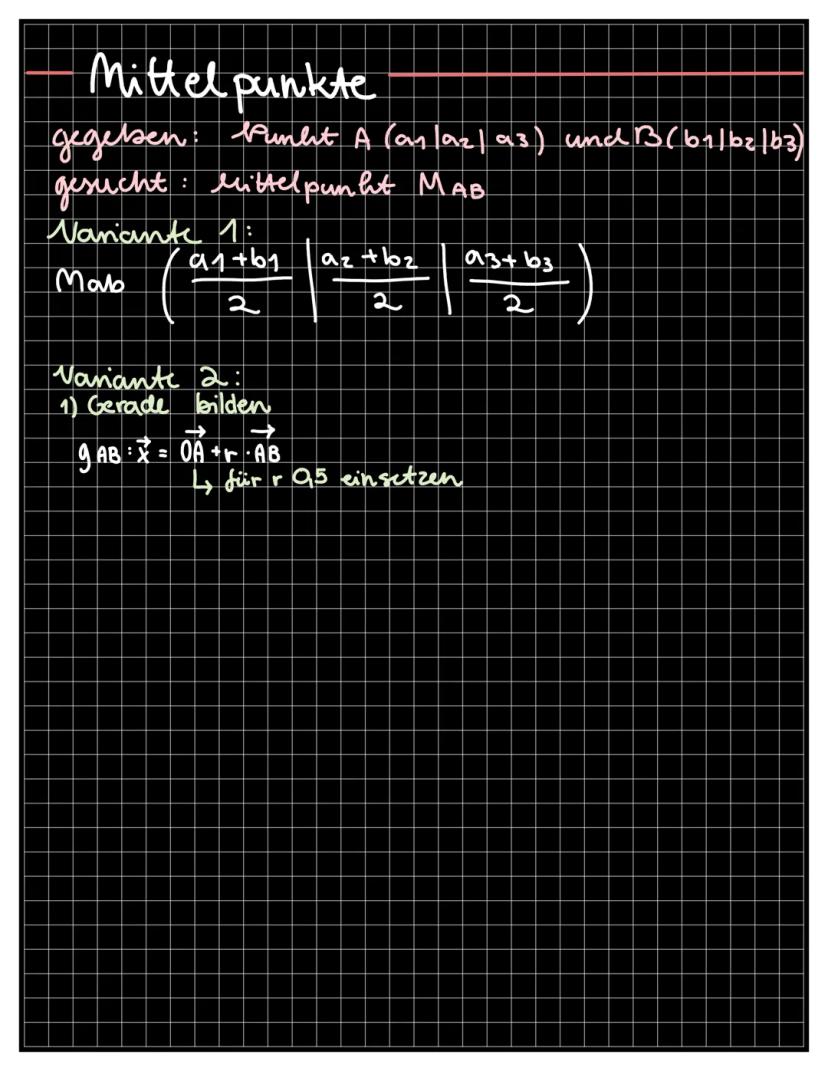 Mittelpunkte
gegeben: Punkt A (a1|a2|a3) und B(b1|b2|b3)
gesucht: Mittelpunkt MAB
Variante 1:
Mab ( a1+b1/2 | a2+b2/2 | a3+b3/2 )
Variante 2:
1) Gerade bilden
gAB: x⃗ = OA⃗ + r · AB⃗
↳ für r 0,5 einsetzen